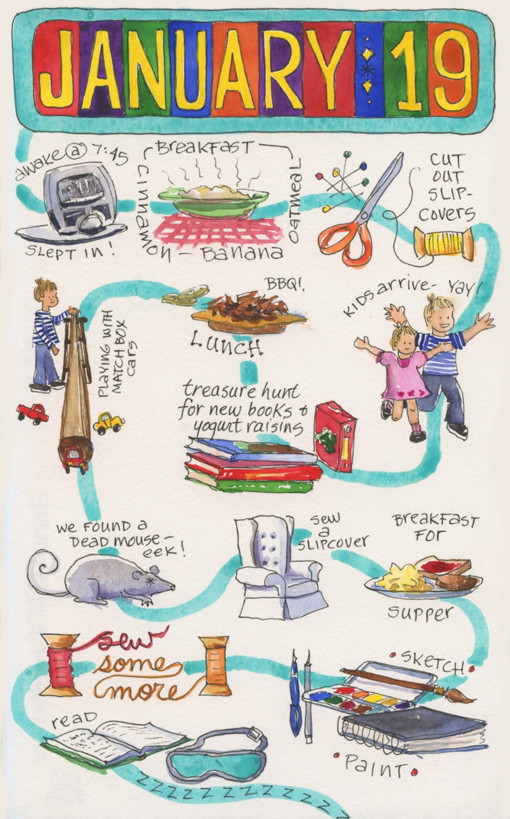 JANUARY 19
AWAKE @ 7:45
SLEPT IN!
BREAKFAST
Cinnamon-Banana
OATMEAL
CUT
OUT
SLIP-
COVERS
KIDS ARRIVE- YAY!
BBQ!
LUNCH
treasure hunt
for new books &
yogurt raisins
PLAYING WITH
MATCHBOX
CARS
WE FOUND A
DEAD MOUSE-
EEK!
SEW
A
SLIPCOVER
BREAKFAST
FOR
SUPPER
sew
some
more
SKETCH
PAINT
READ
ZZZZZZZZZZZZZZ